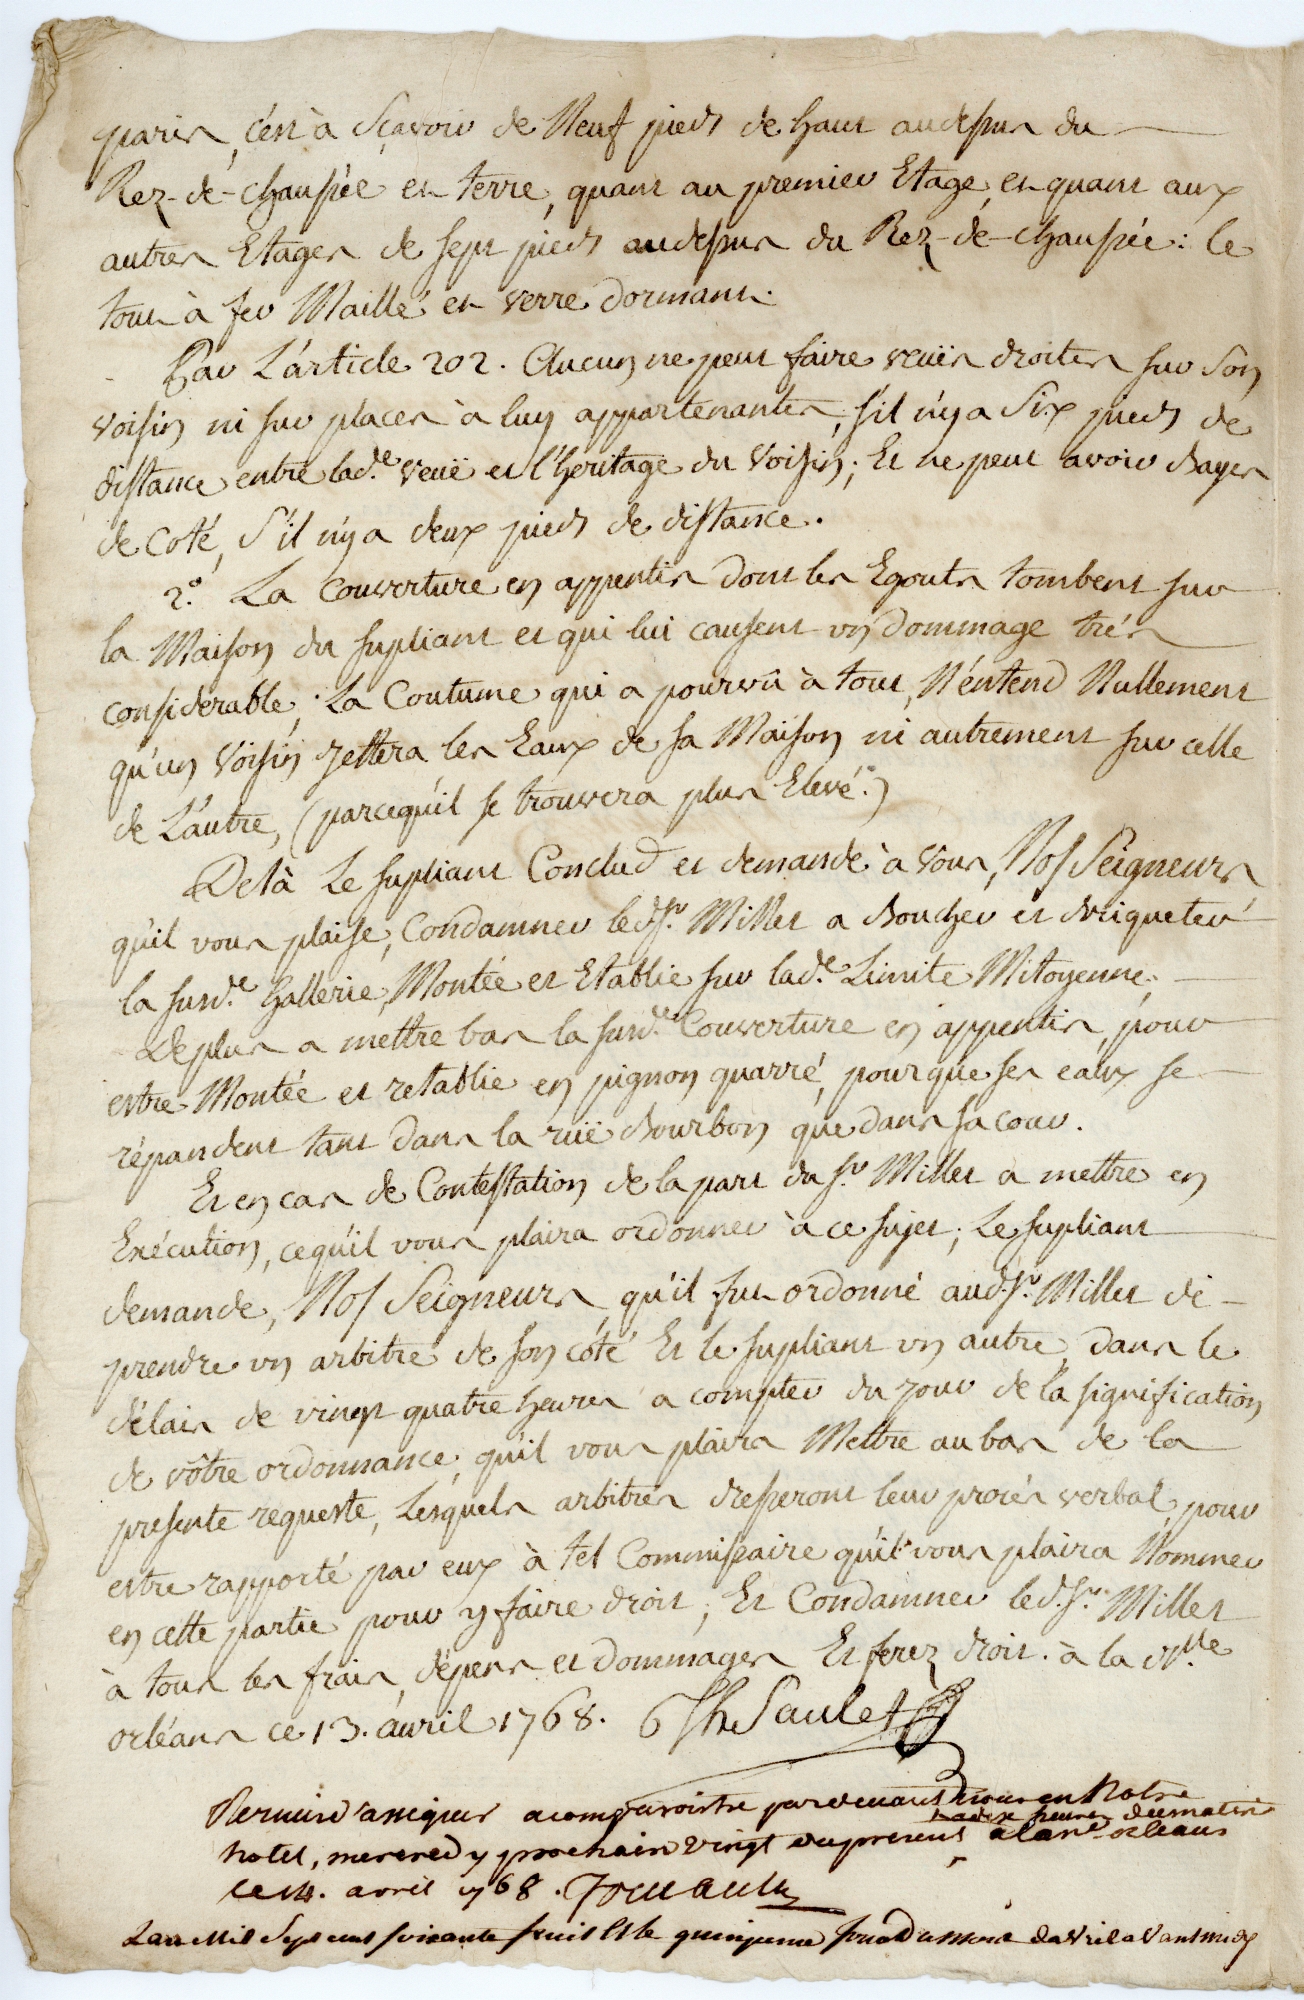 paris, c'est à Sçavoir de Neuf pieds de haut audessus du
Rez-de-chaussée et terre, quant au premier Etage, et quant aux
autres Etages de sept pieds audessus du Rez-de-chaussée: le
tout à fer Maillé et verre dormant.
Par L'article 202. Aucun ne peut faire veües droites sur son
voisin ni sur places à luy appartenantes, s'il n'y a Six pieds de
distance entre lad.e veüe et l'heritage du Voisin; Et ne peut avoir bayes
de coté, s'il n'y a deux pieds de distance.
2.° La Couverture en appentis dont les Egouts tombent sur
la Maison du supliant et qui lui causent un dommage trés
considérable; La Coutume qui a pourvû à tout, N'éntend Nullement
qu'un Voisin jettera les Eaux de sa Maison ni autrement sur celle
de L'autre, (parcequ'il se trouvera plus Elevé.)
Delà Le supliant Conclud et demande à Vous, NosSeigneurs
qu'il vous plaise, Condamner led. Sr. Millet a Boucher et briqueter
la susd.e Gallerie, Montée et Etablie sur lad.e Limite Mitoyenne;
Deplus a mettre bas la susd.e Couverture en appentis, pour
estre Montée et retablie en pignon quarré, pour que ses eaux se
répandent tant dans la rüe Bourbon que dans sa cour.
Et en cas de Contestation de la part du Sr. Millet a mettre en
Exécution, ce qu'il vous plaira ordonner à ce sujet; Le supliant
demande, NosSeigneurs, qu'il fut ordonné aud. Sr. Millet de
prendre un arbitre de son côté Et le supliant un autre, dans le
délais de vingt quatre heures a compter du jour de la signification
de vôtre ordonnance, qu'il vous plaira Mettre au bas de la
presente requeste, Lesquels arbitres dresseront leur procés verbal, pour
estre rapporté par eux à tel Commissaire qu'il vous plaira Nommer
en cette partie pour y faire droit; Et Condamner led. Sr. Millet
à tous les frais, dépens et dommages Et ferez droit. à la N.lle
orléans ce 13. avril 1768. Th Saulet
Permis d'assigner a comparoistre pardevant nous en Notre
hotel, mercredy prochain vingt du present a dix heures du matin a la nlle orleans
ce 14. avril 1768. Foucault
Lan Mil Sept cent soixante huit & le quinzieme jour du mois davril avant midy